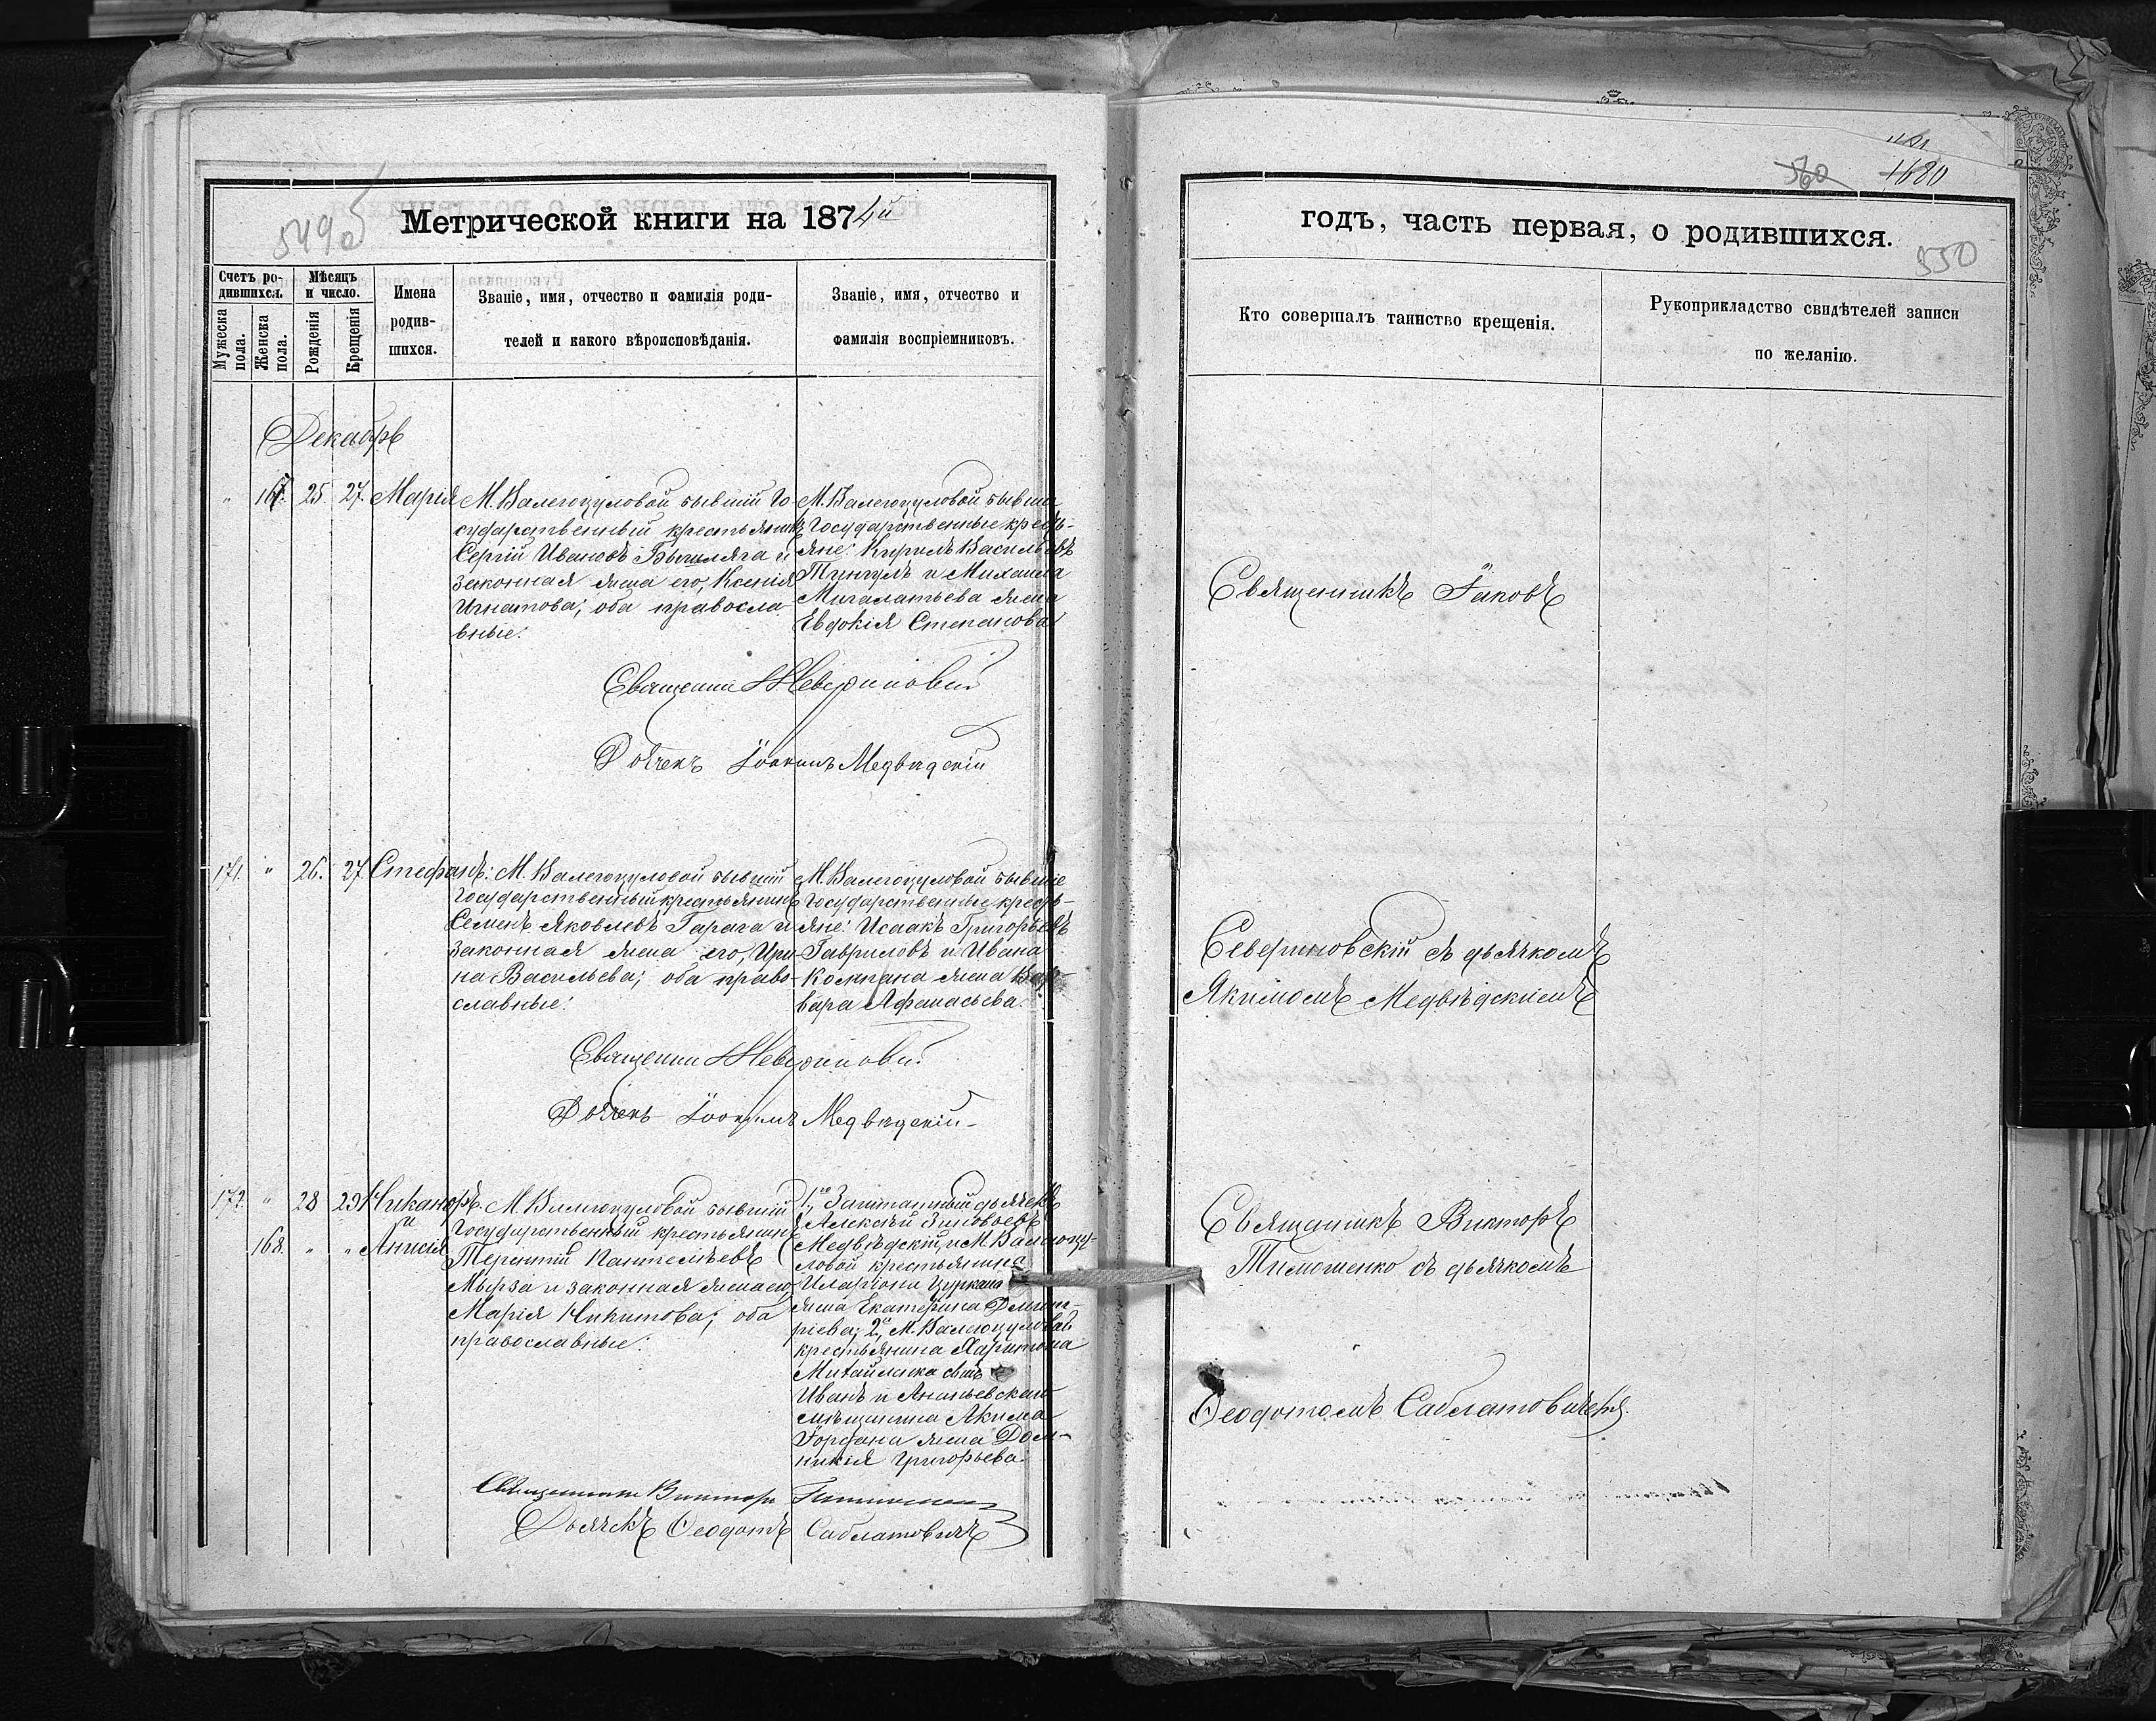 549 об
Метрической книги на 1874й
Счетъ ро-
дившихся.
Мѣсяцъ
и число.
Мужеска
пола.
Женска
пола.
Рожденія
Крещенія
Имена
родив-
шихся.
Званіе, имя, отчество и фамилія роди-
телей и какого вѣроисповѣданія.
Званіе, имя, отчество и
фамилія воспріемниковъ.
Декабрь
„ 167. 25. 27. Марія
М. Валегоцуловой бывшій Го-
сударственный крестьянинъ
Сергій Ивановъ
законная жена его, Ксенія
Игнатова; оба правосла-
вные.
М. Валегоцуловой бывшіе
Государственные кресть-
яне: Кирилъ Васильевъ
и Михаила
жена
Евдокія Степанова
Дьячекъ Іоакимъ Медвѣдскій
171. „ 26. 27 Стефанъ.
М. Валегоцуловой бывшій
Государственный крестьянинъ
Семенъ Яковлевъ Гарага и
законная жена его, Ири-
на Васильева; оба право-
славные.
М. Валегоцуловой бывшіе
Государственные кресть-
яне: Исаакъ Григорьевъ
Гавриловъ и Ивана
жена Вар-
вара Афанасьева.
Дьячекъ Іоакимъ Медвѣдскій
172. „ 28 29 Никаноръ.
и
168. „ „ Анисія
М. Валегоцуловой бывшій
Государственный крестьянинъ
Терентій Пантелѣевъ
Мырза и законная жена его,
Марія Никитова; оба
православные.
1., Заштатный дьячекъ
Алексѣй Зиновьевъ
Медвѣдскій, и М. Валегоцу-
ловой крестьянина
Иларіона Цуркана
жена Екатерина Димит-
ріева; 2., М. Валегоцуловой
крестьянина Харитона
сынъ
Иванъ и Ананьевскаго
мѣщанина Акима
жена Дом-
никія Григорьева
Священникъ Викторъ Тимошенко
Дьячекъ Ѳеодотъ Саблатовичъ
560 1680
годъ, часть первая, о родившихся.
550
Кто совершалъ таинство крещенія.
Рукоприкладство свидѣтелей записи
по желанію.
Священникъ Іаковъ
Севериновскій съ дьячкомъ
Якимомъ Медвѣдскимъ
Священникъ Викторъ
Тимошенко съ дьячкомъ
Ѳеодотомъ Саблатовичемъ.